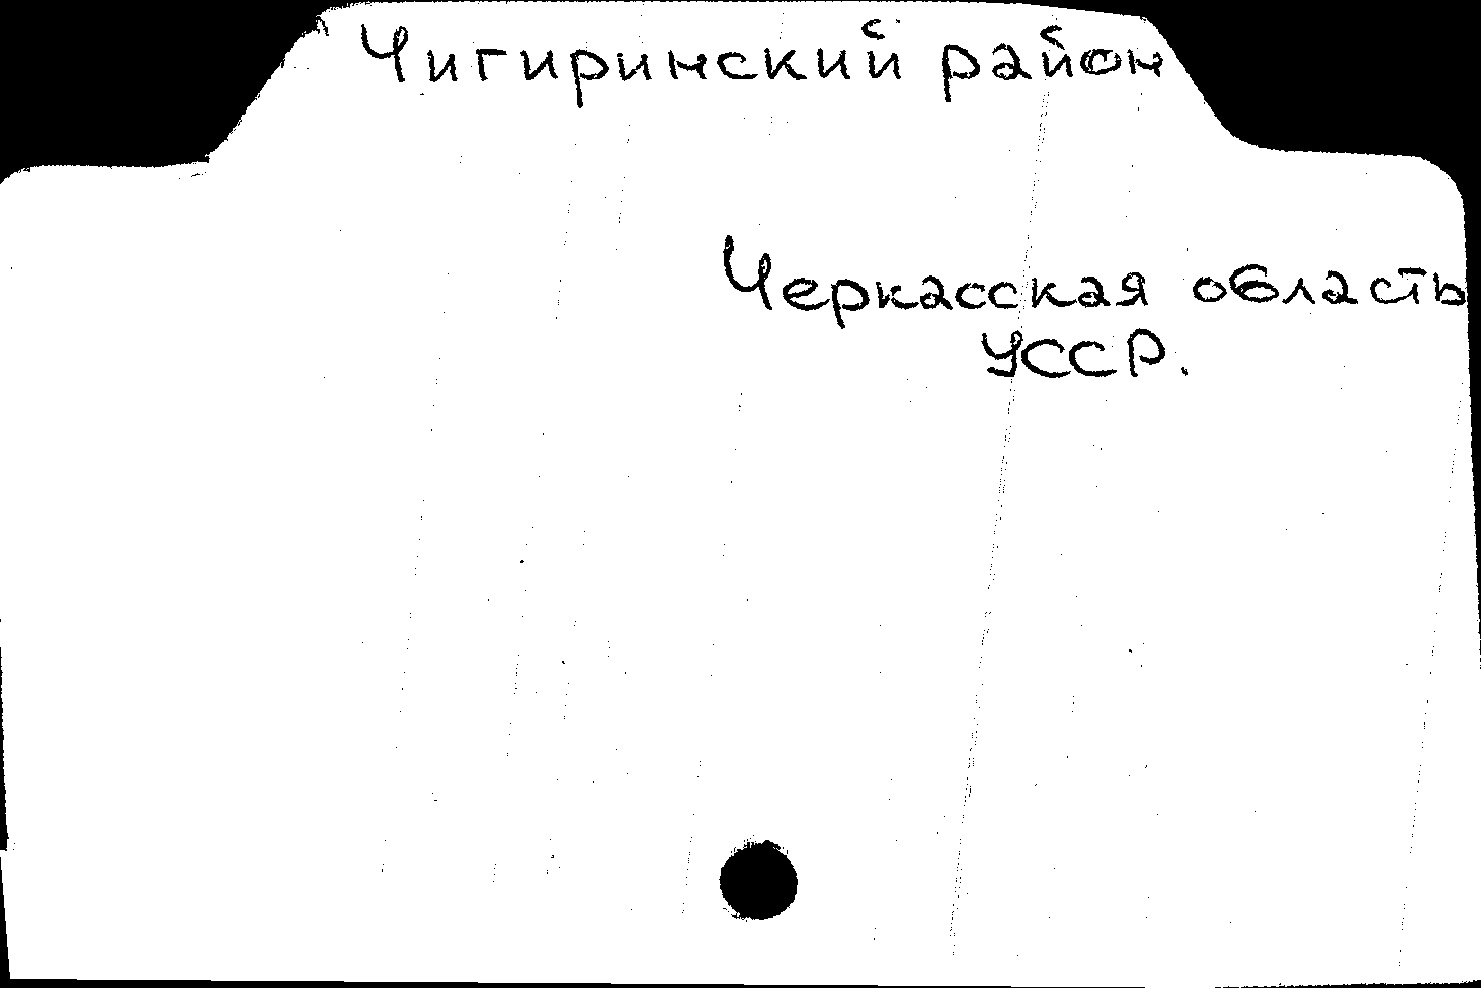 Чигиринский район
Черкасская область
УССР.